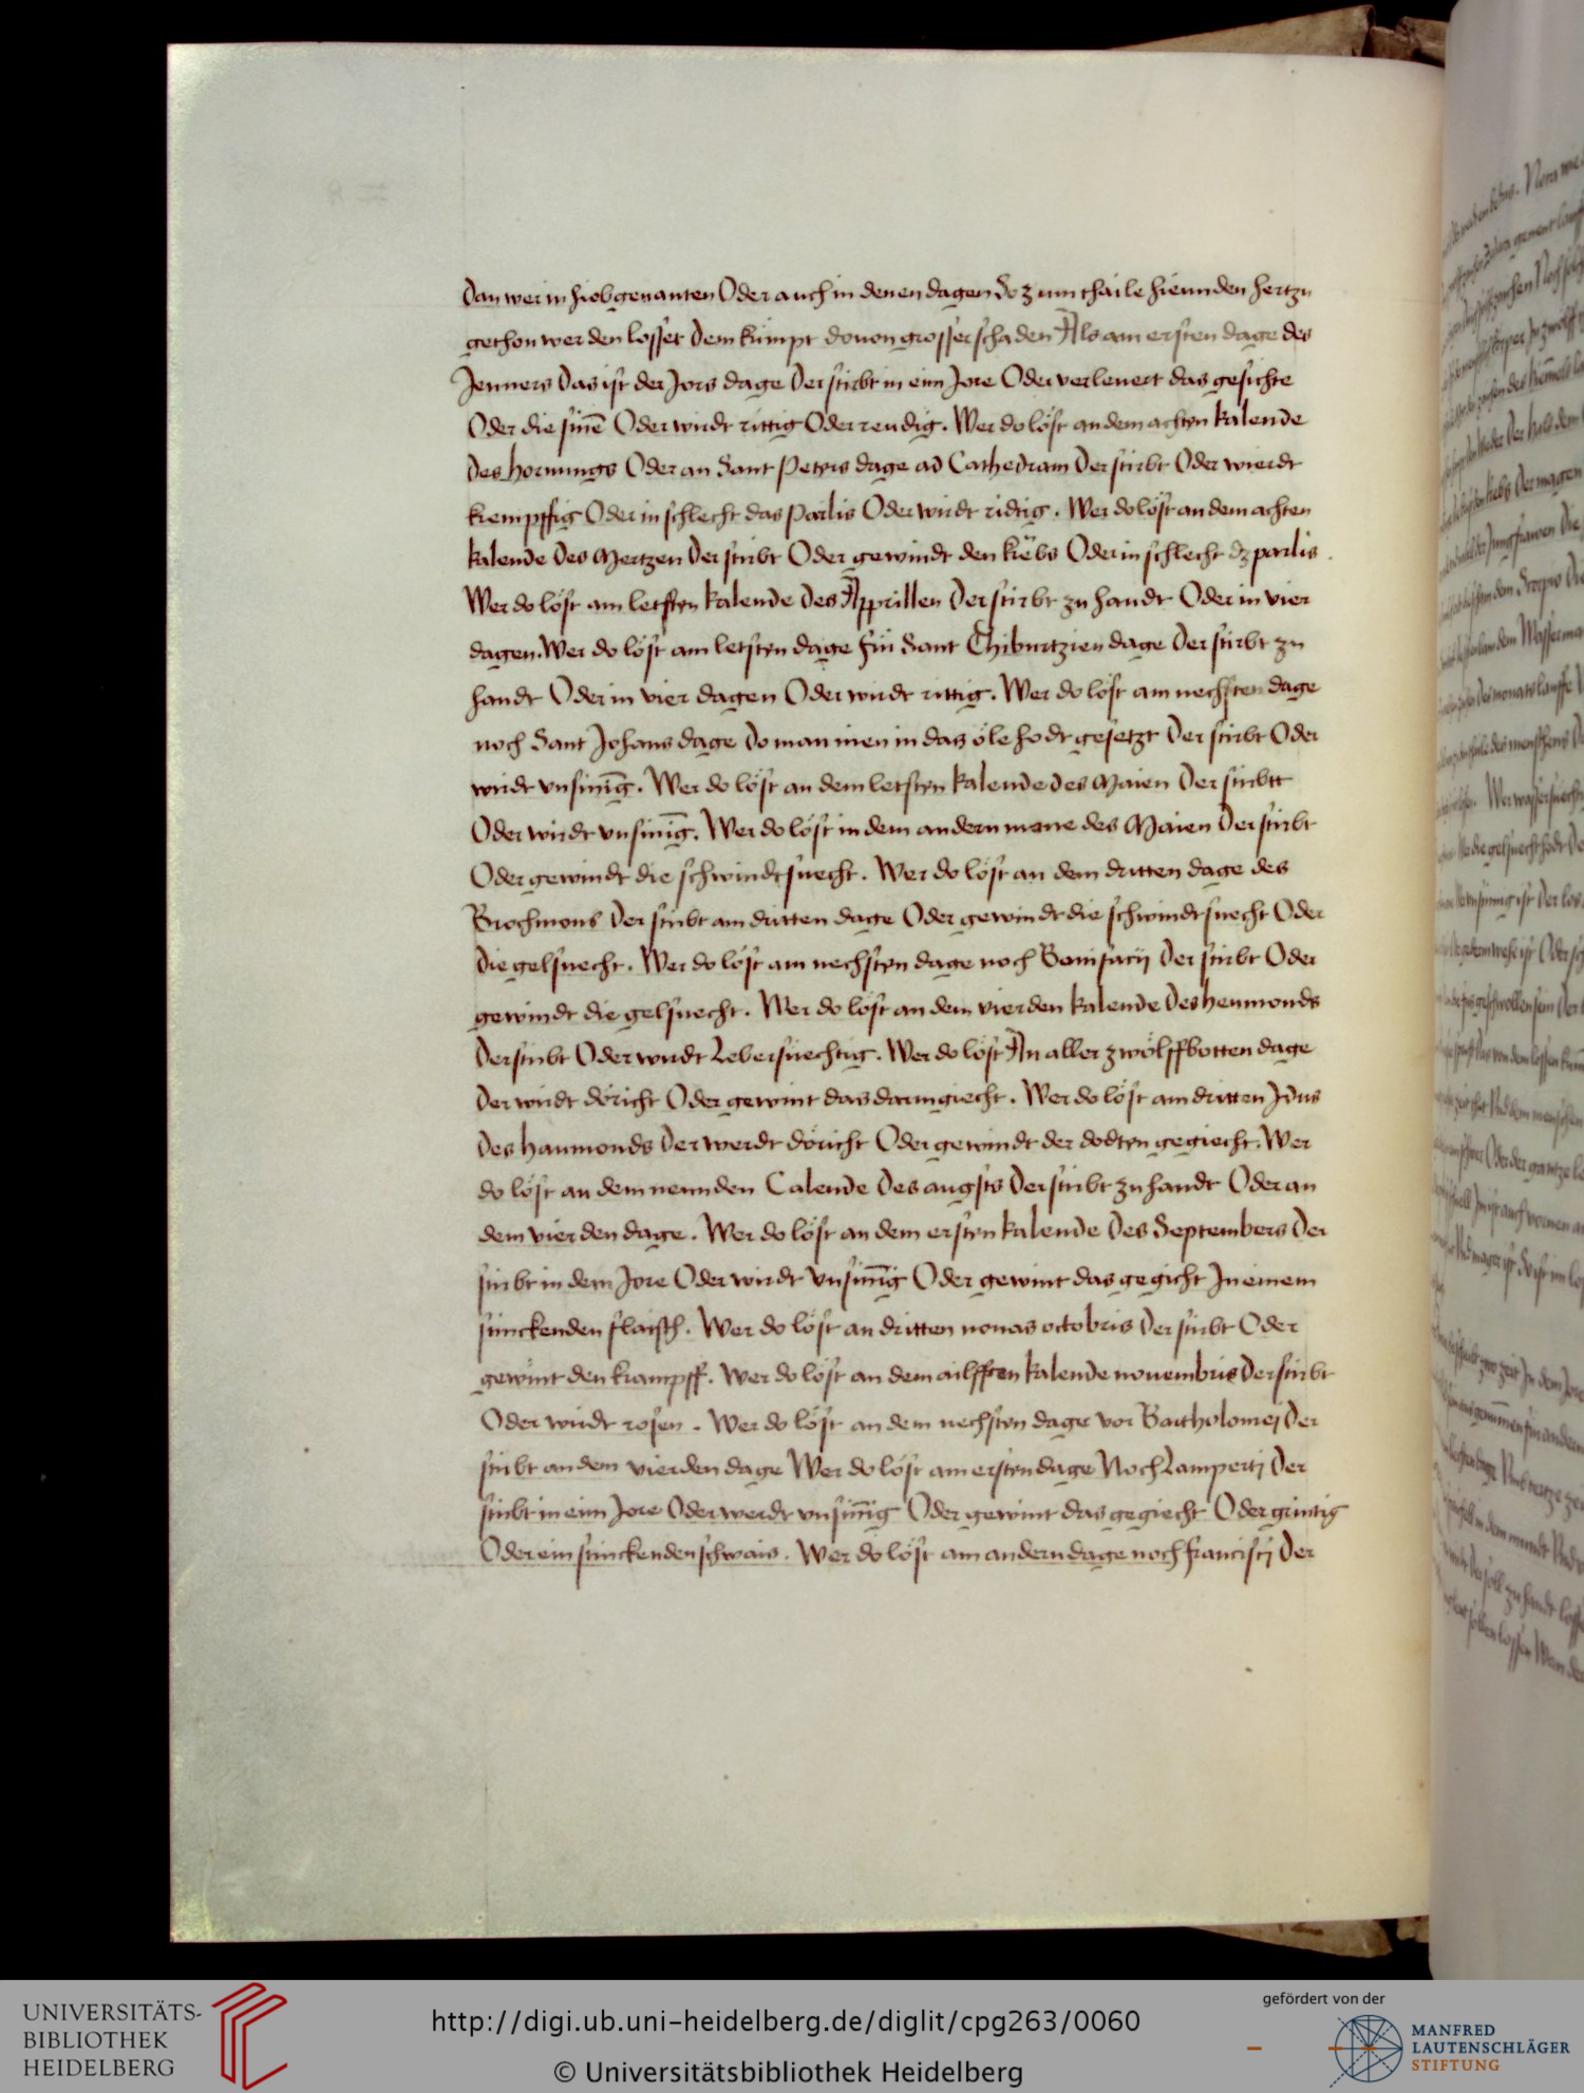 Dan wer in hiebgenanten Oder auch in denen dagen So zum thaile hieunden hertzu
gethon werden losset Dem kumpt douon grosser schaden Als am ersten dage des
Jenners Das ist der Jors dage Der stirbt in eim Jore Oder verleuert das gesichte
Oder die sine̅ Oder wirdt rittig Oder reudig. Wer do löst an dem achten kalende
Des hornungs Oder an Sant Peters dage ad Cathedram Der stirbt Oder wierdt
krempffig Oder in schlecht das Parlis Oder wirdt ridtig. Wer do löst an dem achten
kalende Des Mertzen Der stirbt Oder gewindt den krebs Oder in schlecht dz parlis.
Wer do löst am letsten kalende Des Apprillen Der stirbt zu handt Oder in vier
dagen. Wer do löst am letsten dage für Sant Thiburtzien dage Der stirbt zu
handt Oder in vier dagen Oder wirdt rittig. Wer do löst am nechsten dage
noch Sant Johans dage Do man inen in das öle hodt gesetzt Der stirbt Oder
wirdt vnsini̅g. Wer do löst an dem letsten kalende des Maien Der stirbtt
Oder wirdt vnsini̅g. Wer do löst in dem andern mone des Maien Der stirbt
Oder gewindt die schwindtsuecht. Wer do löst an dem dritten dage des
Brochmons Der stirbt am dritten dage Oder gewindt die schwindtsuecht Oder
Die gelsuecht. Wer do löst am nechsten dage noch Bonifacij Der stirbt Oder
gewindt die gelsuecht. Wer do löst an dem vierden kalende Des heumonds
Der stirbt Oder wirdt Lebersuechtig. Wer do löst An aller zwölffbotten dage
Der wirdt döricht Oder gewint das darmgiecht. Wer do löst am dritten Jdus
Des haumonds Der werdt döricht Oder gewindt der dodten gegiecht. Wer
do löst an dem neunden Calende Des augsts Der stirbt zu handt Oder an
dem vierden dage. Wer do löst an dem ersten kalende Des Septembers Der
stirbt in dem Jore Oder wirdt vnsini̅g Oder gewint das gegicht In einem
stinckenden flaisch. Wer do löst an dritten nonas octobris Der stirbt Oder
gewint den krampff. Wer do löst an dem ailfften kalende nouembris Der stirbt
Oder wirdt rosen. Wer do löst an dem nechsten dage vor Bartholomej Der
stirbt an dem vierden dage Wer do löst am ersten dage Noch Lampertj Der
stirbt in eim Jore Oder werdt vnsini̅g Oder gewint das gegiecht Oder grintig
Oder ein stinckenden schwais. Wer do löst am andern dage noch francisci Der
UNIVERSITÄTS-
BIBLIOTHEK
HEIDELBERG
http://digi.ub.uni-heidelberg.de/diglit/cpg263/0060
© Universitätsbibliothek Heidelberg
gefördert von der
MANFRED
LAUTENSCHLÄGER
STIFTUNG